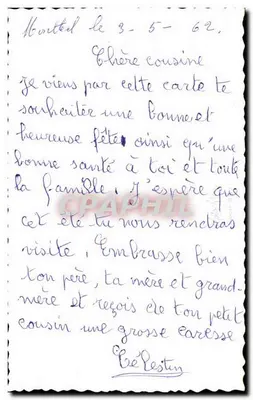 le 3-5-62.
Chère cousine
Je viens par cette carte te
souhaiter une bonne et
heureuse fête ainsi qu'une
bonne santé à toi et toute
la famille. J'espère que
cet été tu nous rendras
visite. Embrasse bien
ton père, ta mère et grand-
mère et reçois de ton petit
cousin une grosse caresse
Célestin